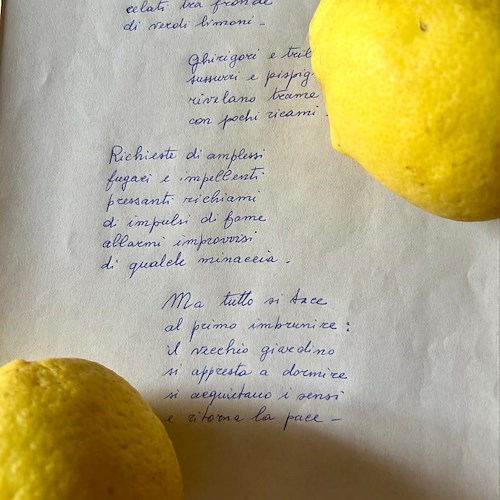 celati tra fronde
di verdi limoni -
Ghirigori e
sussurri e
rivelano trame
con pochi ricami -
Richieste di amplessi
fugaci e impellenti
pressanti richiami
di impulsi di fame
allarmi improvvisi
di qualche minaccia -
Ma tutto si tace
al primo imbrunire :
il vecchio giardino
si appresta a dormire
si acquietano i sensi
e ritorna la pace -